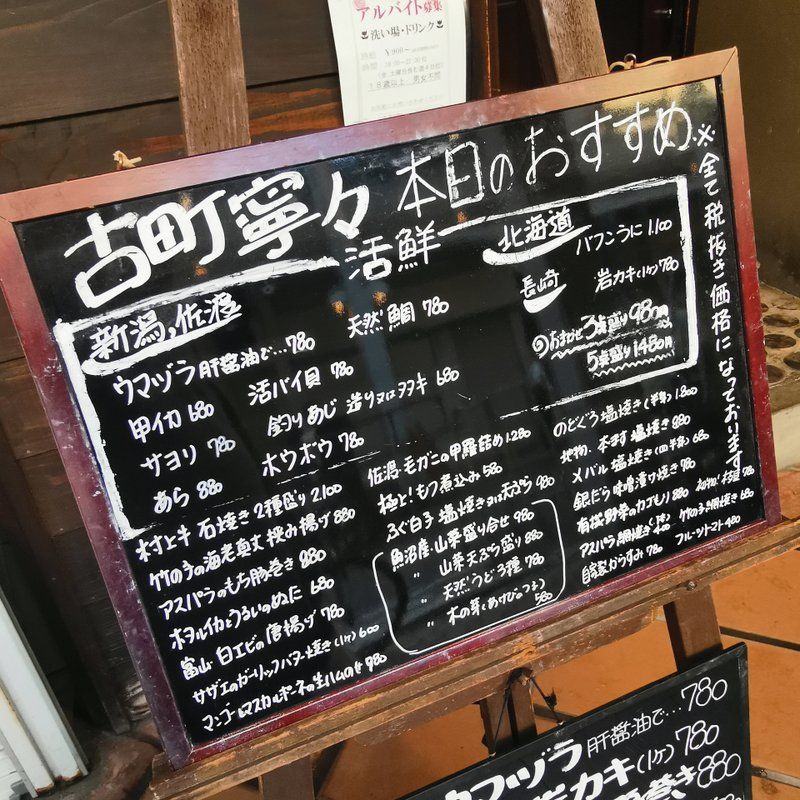 アルバイト募集
洗い場・ドリンク
時給 ¥900~
時間 18:00~21:30位
18歳以上 男女不問
古町寧々 本日のおすすめ
※全て税抜き価格になっております
活鮮
新潟,佐渡
ウマヅラ 肝醤油で…780
天然 鯛 780
甲イカ 680
活バイ貝 780
サヨリ 780
釣りあじ 造り又はタタキ 680
あら 880
ホウボウ 780
北海道
バフンうに 1.100
長崎
岩カキ(1ケ) 780
おまかせ 3点盛り 980円
5点盛り 1480円
村上牛 石焼き 2種盛り 2.100
竹の子の海老真丈 挟み揚げ 880
アスパラのもち豚巻き 880
ホタルイカとうるいのぬた 680
富山 白エビの唐揚げ 780
サザエのガーリックバター焼き(1ケ) 600
マンゴーとマスカルポーネの生ハムのせ 980
佐渡 毛ガニの甲羅詰め 1.280
極上!もつ煮込み 580
ふぐ白子 塩焼き又は天ぷら 980
魚沼産 山菜盛り合せ 980
〃 山菜天ぷら盛り 880
〃 天然うど3種 780
〃 木の芽(あけびのつる) 580
のどぐろ塩焼き(半身) 1.800
メバル 塩焼き 680
銀だら味噌漬け焼き 780
有機野菜のカゴもり 880
アスパラ網焼き 480
竹の子の網焼き 680
自家製からすみ 780
フルーツトマト 480
ウマヅラ 肝醤油で…780
岩カキ(1ケ) 780
巻き 880